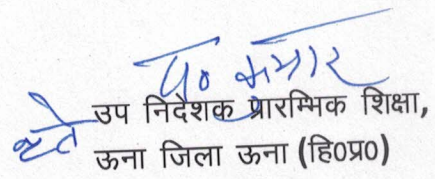 कृते
उप निदेशक प्रारम्भिक शिक्षा,
ऊना जिला ऊना (हि0प्र0)